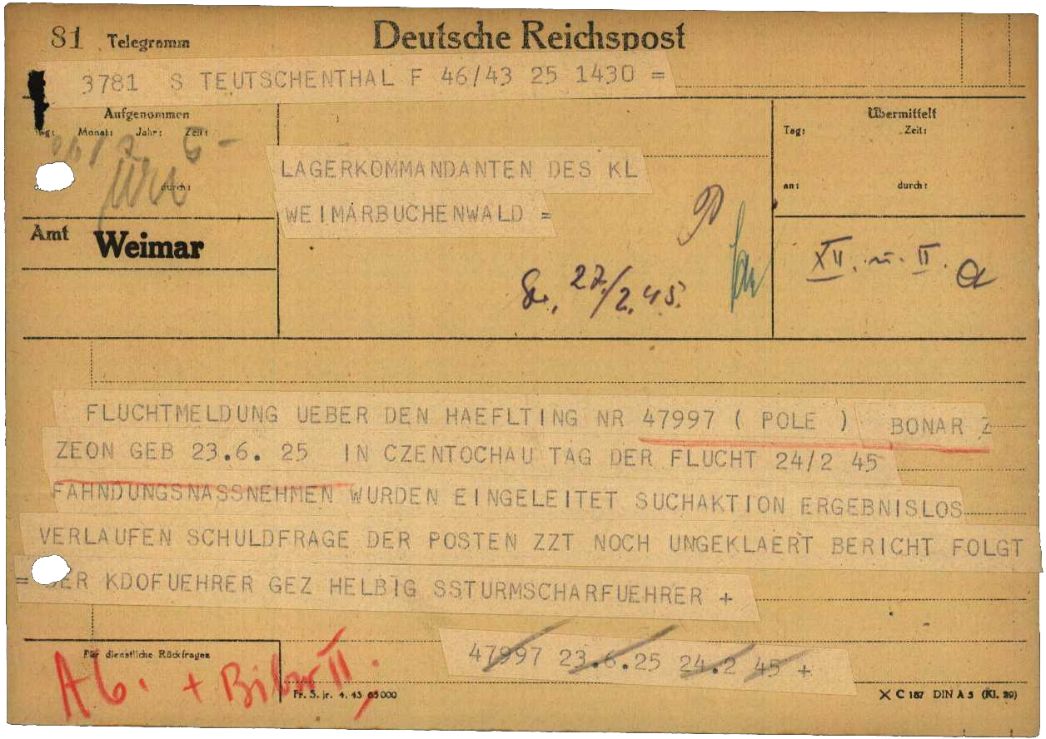 81 Telegramm Deutsche Reichspost
3781 S TEUTSCHENTHAL F 46/43 25 1430 =
Aufgenommen
Monat: Jahr: Zeit:
durch:
Übermittelt
Tag: Zeit:
an: durch:
LAGERKOMMANDANTEN DES KL
WEIMARBUCHENWALD =
Amt Weimar
XII. u. II.
27./2.45.
FLUCHTMELDUNG UEBER DEN HAEFLTING NR 47997 ( POLE ) BONAR Z
ZEON GEB 23.6. 25 IN CZENTOCHAU TAG DER FLUCHT 24/2 45
FAHNDUNGSNASSNEHMEN WURDEN EINGELEITET SUCHAKTION ERGEBNISLOS
VERLAUFEN SCHULDFRAGE DER POSTEN ZZT NOCH UNGEKLAERT BERICHT FOLGT
= DER KDOFUEHRER GEZ HELBIG SSTURMSCHARFUEHRER +
47997 23.6.25 24.2 45 +
Für dienstliche Rückfragen
A6. + Büro II.
C 187 DIN A 5 (Kl. 29)